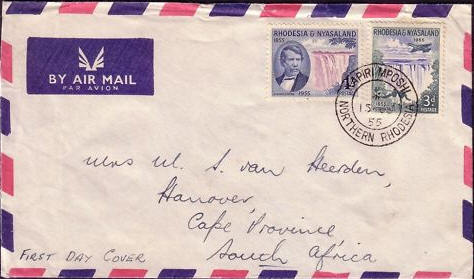 BY AIR MAIL
PAR AVION
RHODESIA & NYASALAND
1855
1955
POSTAGE
RHODESIA & NYASALAND
1955
1855
3d
POSTAGE
KAPIRI MPOSHI
15
55
NORTHERN RHODESIA
Mrs M. S. van Heerden,
Hanover,
Cape Province
South Africa
FIRST DAY COVER